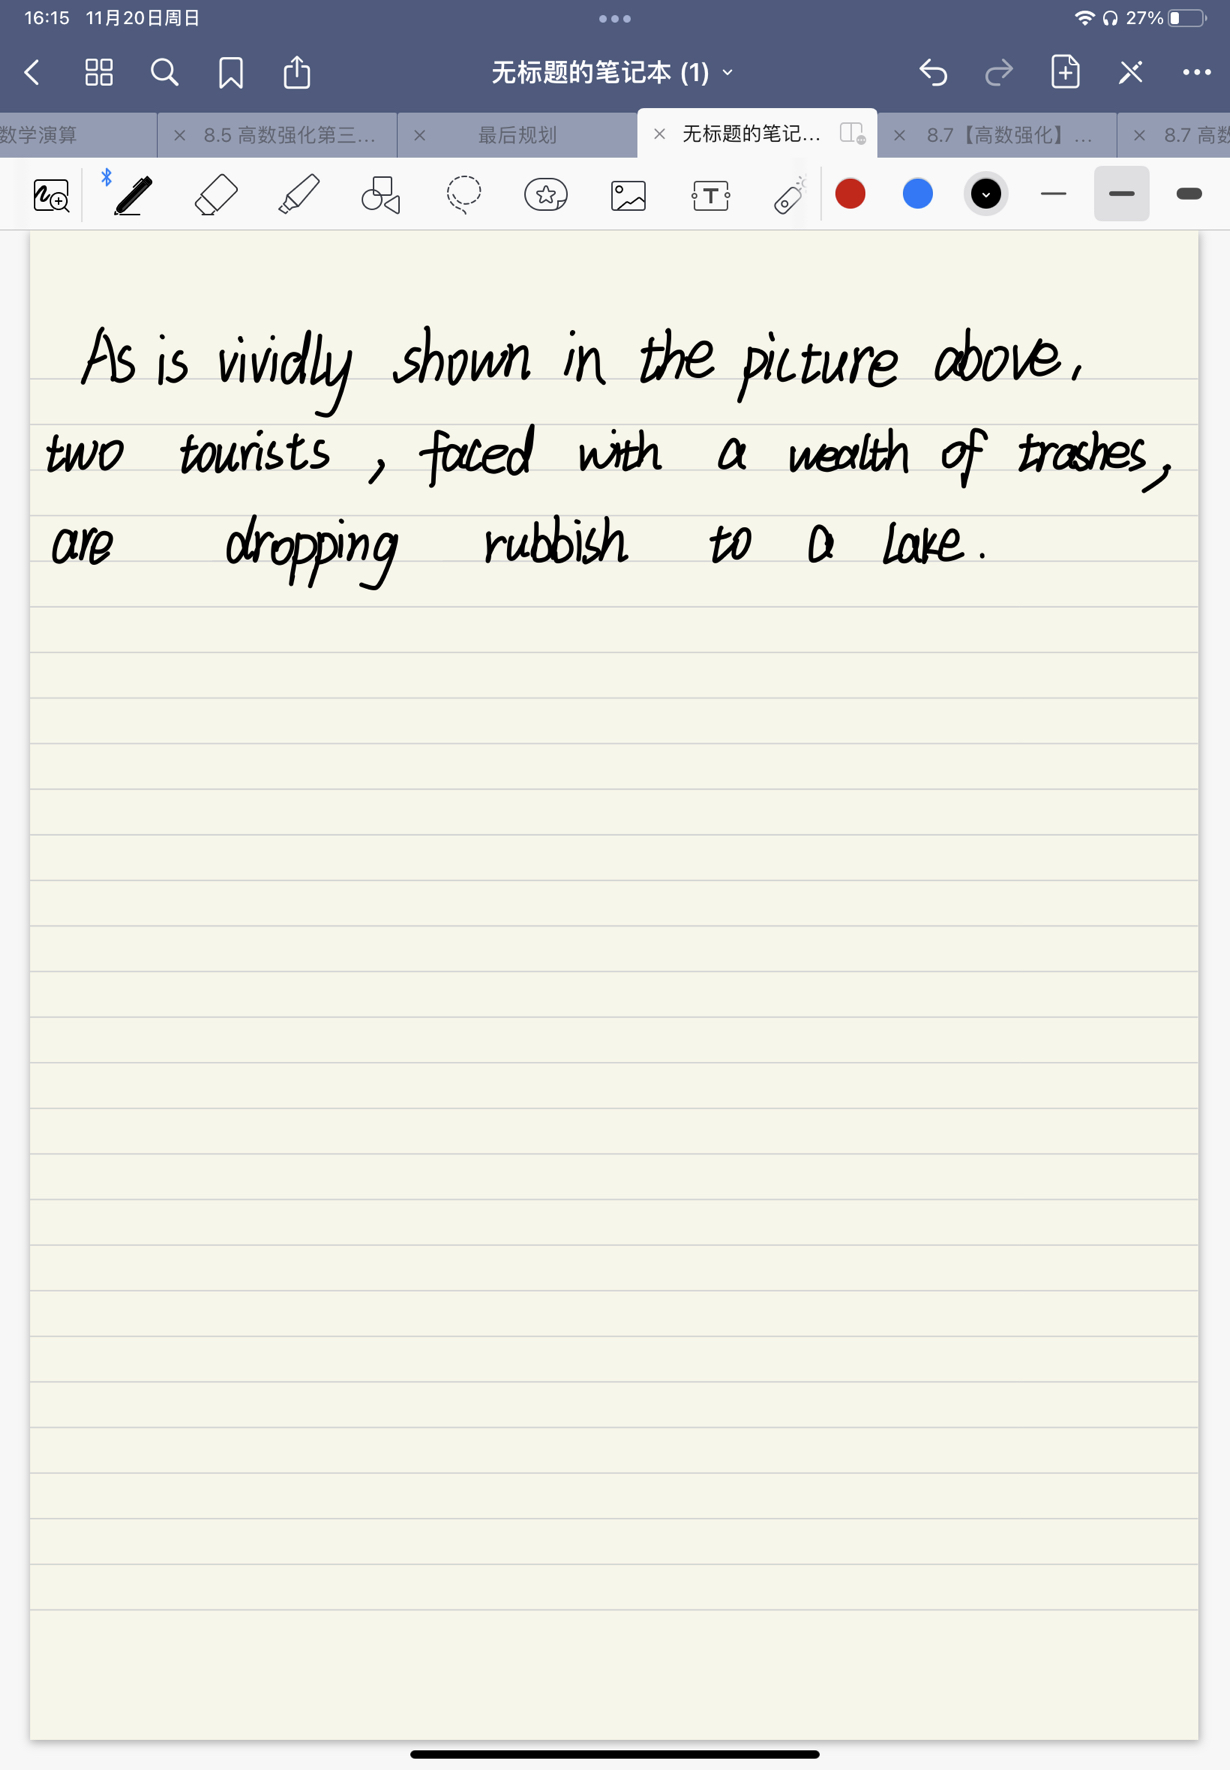 16:15 11月20日周日 27%
无标题的笔记本 (1)
数学演算 8.5 高数强化第三... 最后规划 无标题的笔记... 8.7【高数强化】... 8.7 高数
As is vividly shown in the picture above,
two tourists, faced with a wealth of trashes,
are dropping rubbish to a lake.